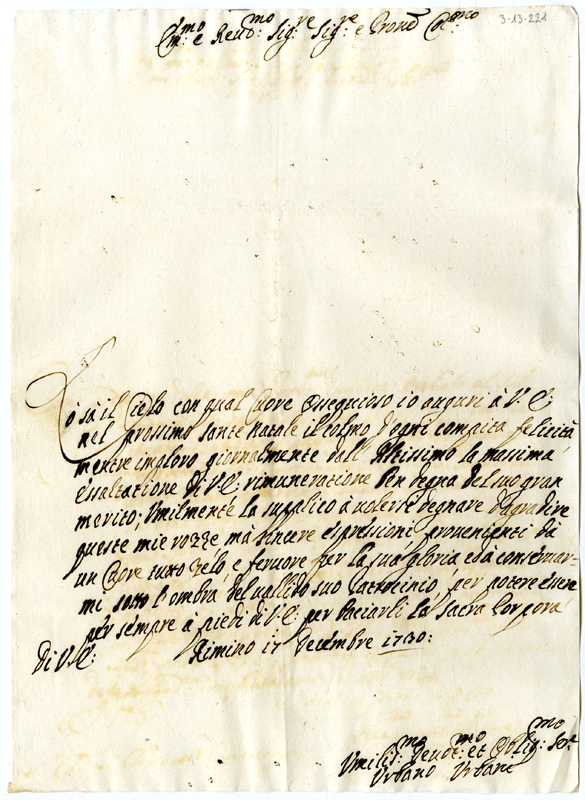 3-13-221
Em:mo e Reud:mo Sig:re Sig:re e Prond Col:mo
Lo sà il Cielo con qual Cuore Ossequioso io auguri à V: E:
nel prossimo Santo Natale il colmo d'ogni compita felicità
mentre imploro giornalmente dall'Altissimo la massima
essaltatione di V: E: rimuneratione ben degna del suo gran
merito; Umilmente la supplico à volersi degnare d'agradire
queste mie rozze mà sincere espressioni provenienti dà
un Cuore tutto zelo, e fervore per la sua gloria ed à conservar-
mi sotto l'ombra del vallido suo Patrocinio, per potere essere
per sempre a piedi di V: E: per baciarli la Sacra Porpora
Di V: E:
Rimino 17 Decembre 1730:
Umilis:mo Deuot:mo et Oblig:mo Se:
Urbano Urbani